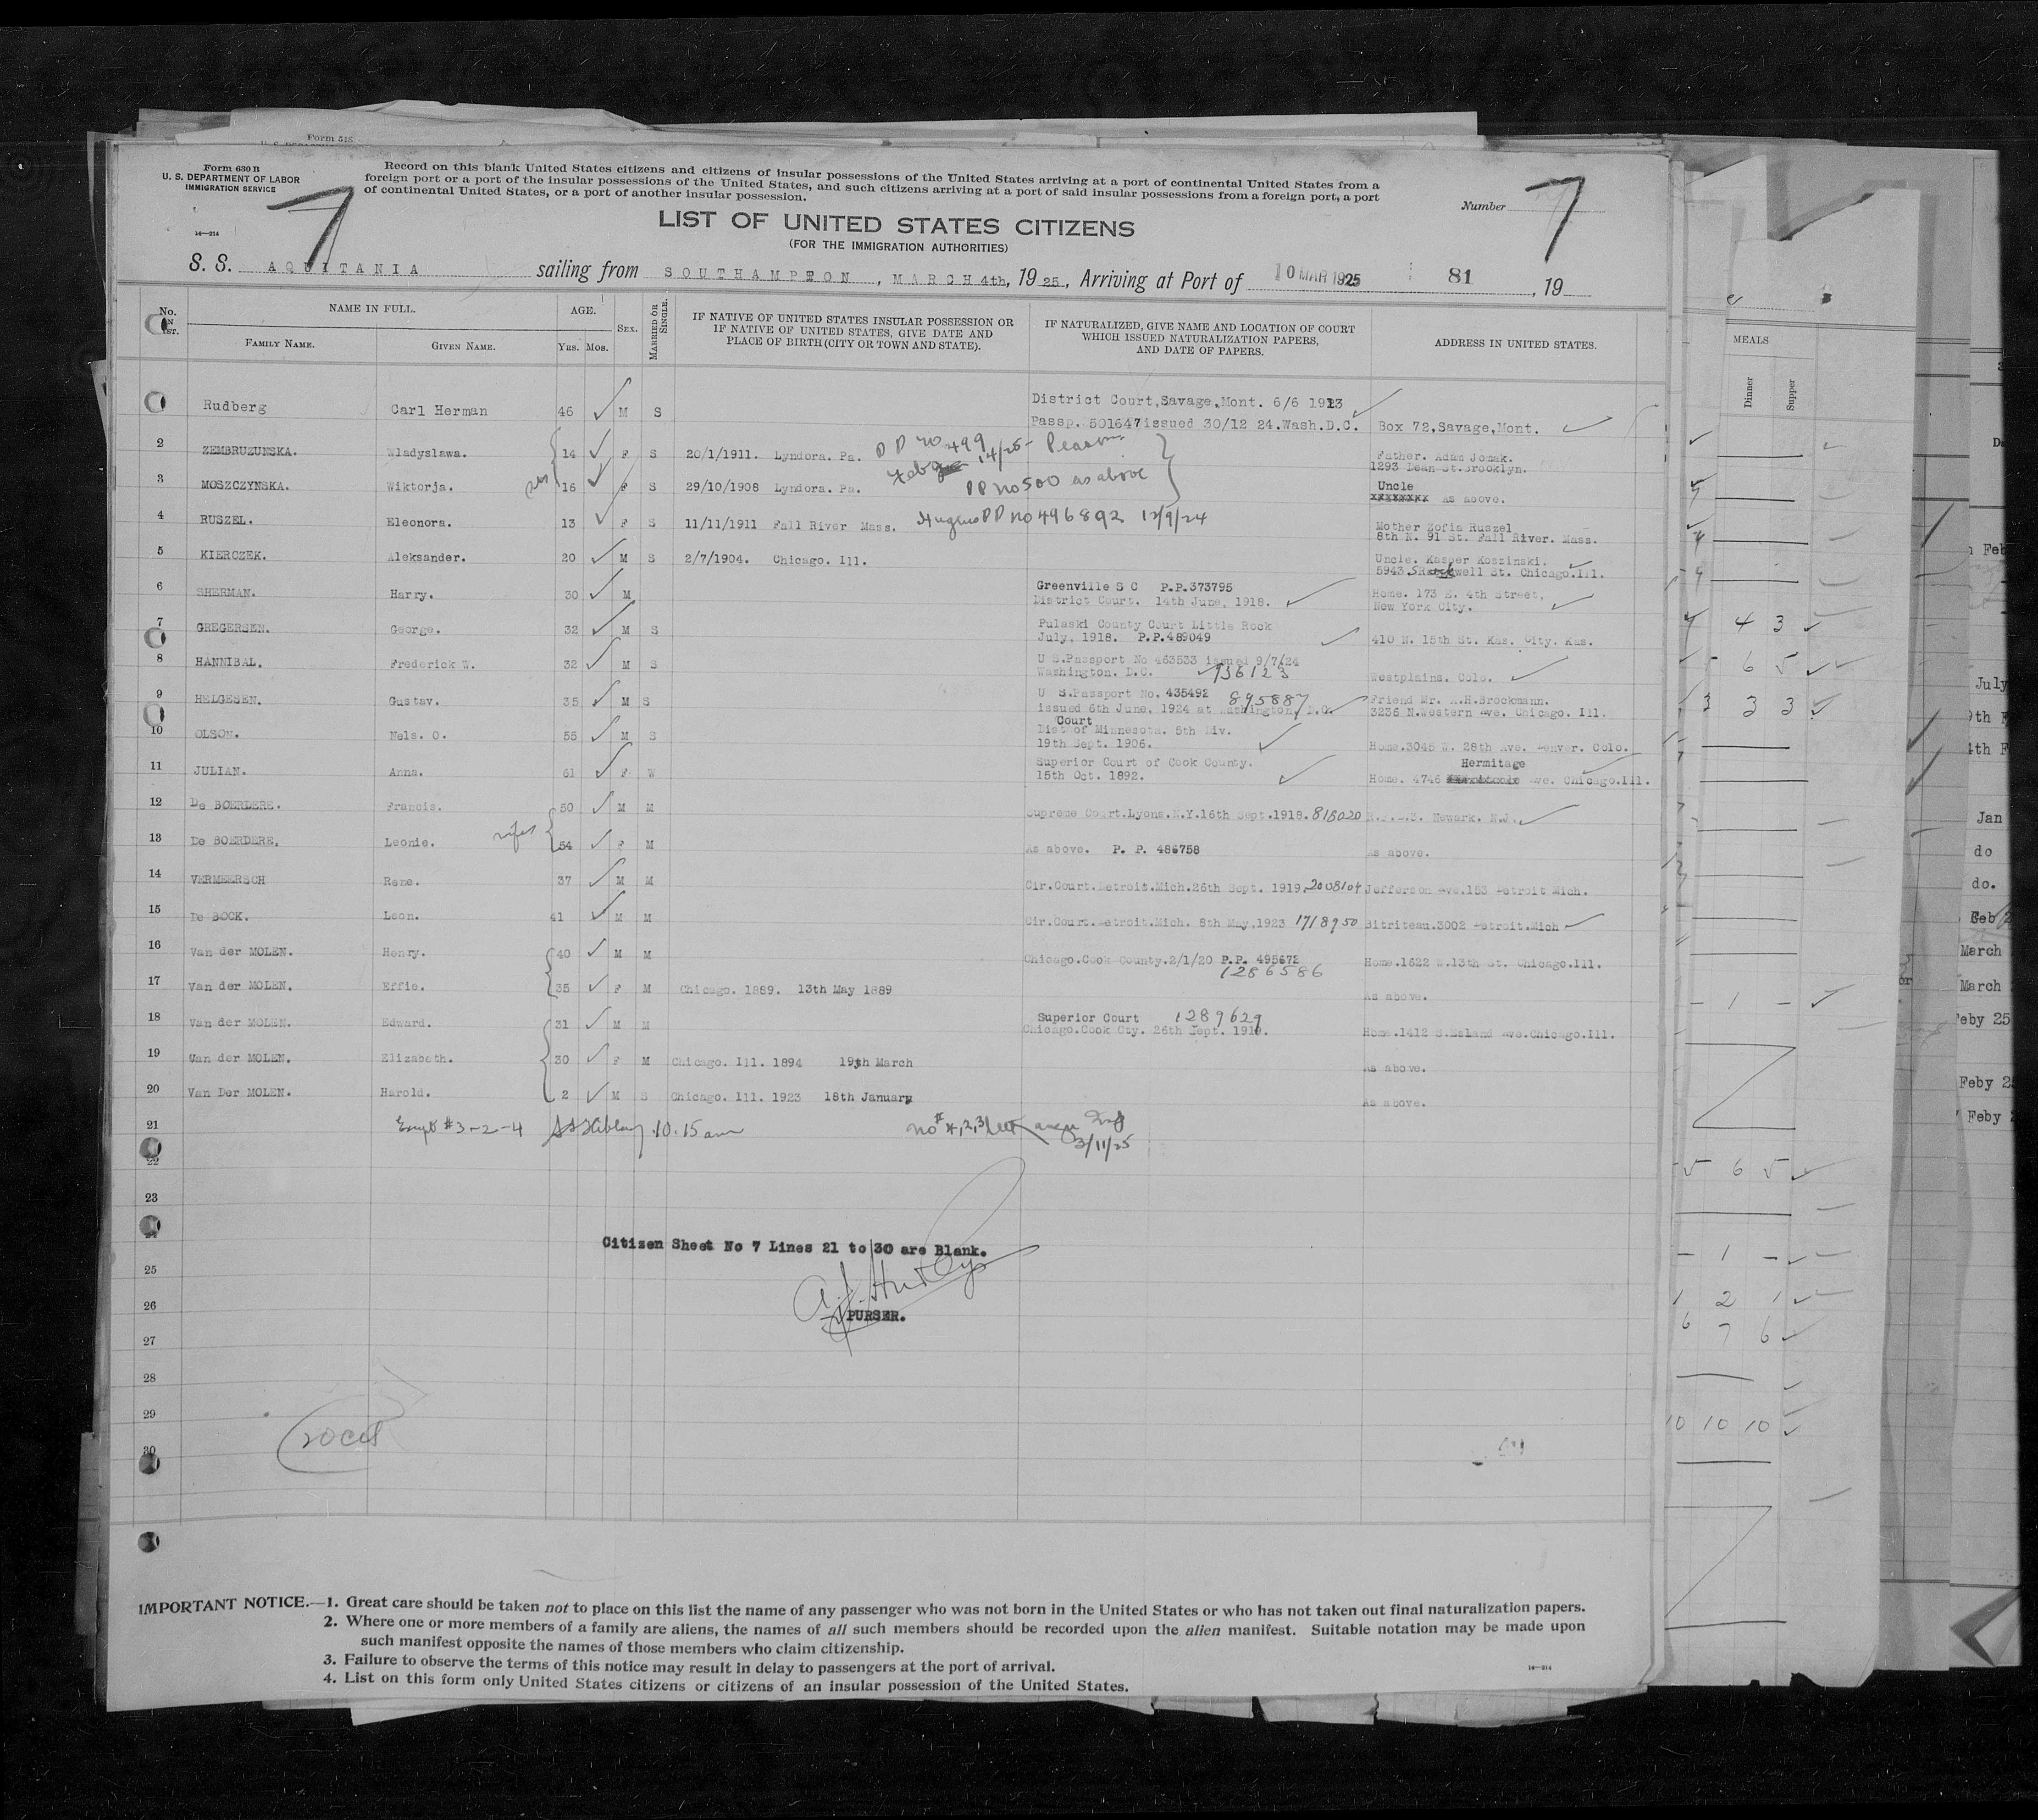 Form 630 B
U. S. DEPARTMENT OF LABOR
IMMIGRATION SERVICE
14—214
7
Record on this blank United States citizens and citizens of insular possessions of the United States arriving at a port of continental United States from a
foreign port or a port of the insular possessions of the United States, and such citizens arriving at a port of said insular possessions from a foreign port, a port
of continental United States, or a port of another insular possession.
Number 7
LIST OF UNITED STATES CITIZENS
(FOR THE IMMIGRATION AUTHORITIES)
S. S. AQUITANIA sailing from SOUTHAMPTON, MARCH 4th, 1925, Arriving at Port of 10 MAR 1925 81, 19
No. IN LIST. NAME IN FULL. AGE. SEX. MARRIED OR SINGLE. IF NATIVE OF UNITED STATES INSULAR POSSESSION OR IF NATIVE OF UNITED STATES, GIVE DATE AND PLACE OF BIRTH (CITY OR TOWN AND STATE). IF NATURALIZED, GIVE NAME AND LOCATION OF COURT WHICH ISSUED NATURALIZATION PAPERS, AND DATE OF PAPERS. ADDRESS IN UNITED STATES.
FAMILY NAME. GIVEN NAME. YRS. MOS.
Rudberg Carl Herman 46 M S District Court, Savage, Mont. 6/6 1913
Passp. 501647 issued 30/12 24. Wash. D.C. Box 72, Savage, Mont.
2 ZEMBRUZUNSKA. Wladyslawa. 14 F S 20/1/1911. Lyndora. Pa. P P no 499 Father. Adam Jomak.
1293 Dean St. Brooklyn.
3 MOSZCZYNSKA. Wiktorja. 16 F S 29/10/1908 Lyndora. Pa. PP no 500 as above Uncle
xxxxxxxx As above.
4 RUSZEL. Eleonora. 13 F S 11/11/1911 Fall River Mass. PP no 496892 12/9/24 Mother Zofia Ruszel
8th N. 91 St. Fall River. Mass.
5 KIERCZEK. Aleksander. 20 M S 2/7/1904. Chicago. Ill. Uncle. Kasper Koszinski.
5943 S Rockwell St. Chicago. Ill.
6 SHERMAN. Harry. 30 M Greenville S C P.P. 373795
District Court. 14th June, 1918. Home. 173 E. 4th Street,
New York City.
7 GREGERSEN. George. 32 M S Pulaski County Court Little Rock
July, 1918. P.P. 489049 410 N. 15th St. Kas. City. Kas.
8 HANNIBAL. Frederick W. 32 M S U S. Passport No 463533 issued 9/7/24
Washington. D.C. 936123 Westplains. Colo.
9 HELGESEN. Gustav. 35 M S U S. Passport No. 435492 895887 Friend Mr. A.H. Brockmann.
issued 6th June, 1924 at Washington, D.C. 3236 N. Western Ave. Chicago. Ill.
10 OLSON. Nels. O. 55 M S Court
Dist of Minnesota. 5th Div.
19th Sept. 1906. Home. 3045 W. 28th Ave. Denver. Colo.
11 JULIAN. Anna. 61 F W Superior Court of Cook County.
15th Oct. 1892. Hermitage
Home. 4746 Ave. Chicago. Ill.
12 De BOERDERE. Francis. 50 M M Supreme Court. Lyons. N.Y. 16th Sept. 1918. 818020 R.F.D.3. Newark. N.J.
13 De BOERDERE. Leonie. wife 54 F M As above. P. P. 486758 As above.
14 VERMEERSCH Rene. 37 M M Cir. Court. Detroit. Mich. 26th Sept. 1919. 2008104 Jefferson Ave. 153 Detroit Mich.
15 De BOCK. Leon. 41 M M Cir. Court. Detroit. Mich. 8th May, 1923 1718950 Bitriteau. 3002 Detroit. Mich
16 Van der MOLEN. Henry. 40 M M Chicago. Cook County. 2/1/20 P.P. 495672
1286586 Home. 1622 W. 13th St. Chicago. Ill.
17 Van der MOLEN. Effie. 35 F M Chicago. 1889. 13th May 1889 As above.
18 Van der MOLEN. Edward. 31 M M Superior Court 1289629
Chicago. Cook Cty. 26th Sept. 1918. Home. 1412 S. Esland Ave. Chicago. Ill.
19 Van der MOLEN. Elizabeth. 30 F M Chicago. Ill. 1894 19th March As above.
20 Van Der MOLEN. Harold. 2 M S Chicago. Ill. 1923 18th January As above.
21 #3-2-4 10.15 am
3/11/25
22
23
24
Citizen Sheet No 7 Lines 21 to 30 are Blank.
25
26 PURSER.
27
28
29
30
IMPORTANT NOTICE.—1. Great care should be taken not to place on this list the name of any passenger who was not born in the United States or who has not taken out final naturalization papers.
2. Where one or more members of a family are aliens, the names of all such members should be recorded upon the alien manifest. Suitable notation may be made upon
such manifest opposite the names of those members who claim citizenship.
3. Failure to observe the terms of this notice may result in delay to passengers at the port of arrival.
4. List on this form only United States citizens or citizens of an insular possession of the United States.
14—214
MEALS
Dinner Supper
4 3
6 5
3 3 3
- 1 -
5 6 5
- 1 -
1 2 1
6 7 6
10 10 10
July
Jan
do
do.
March
March
Feby 25